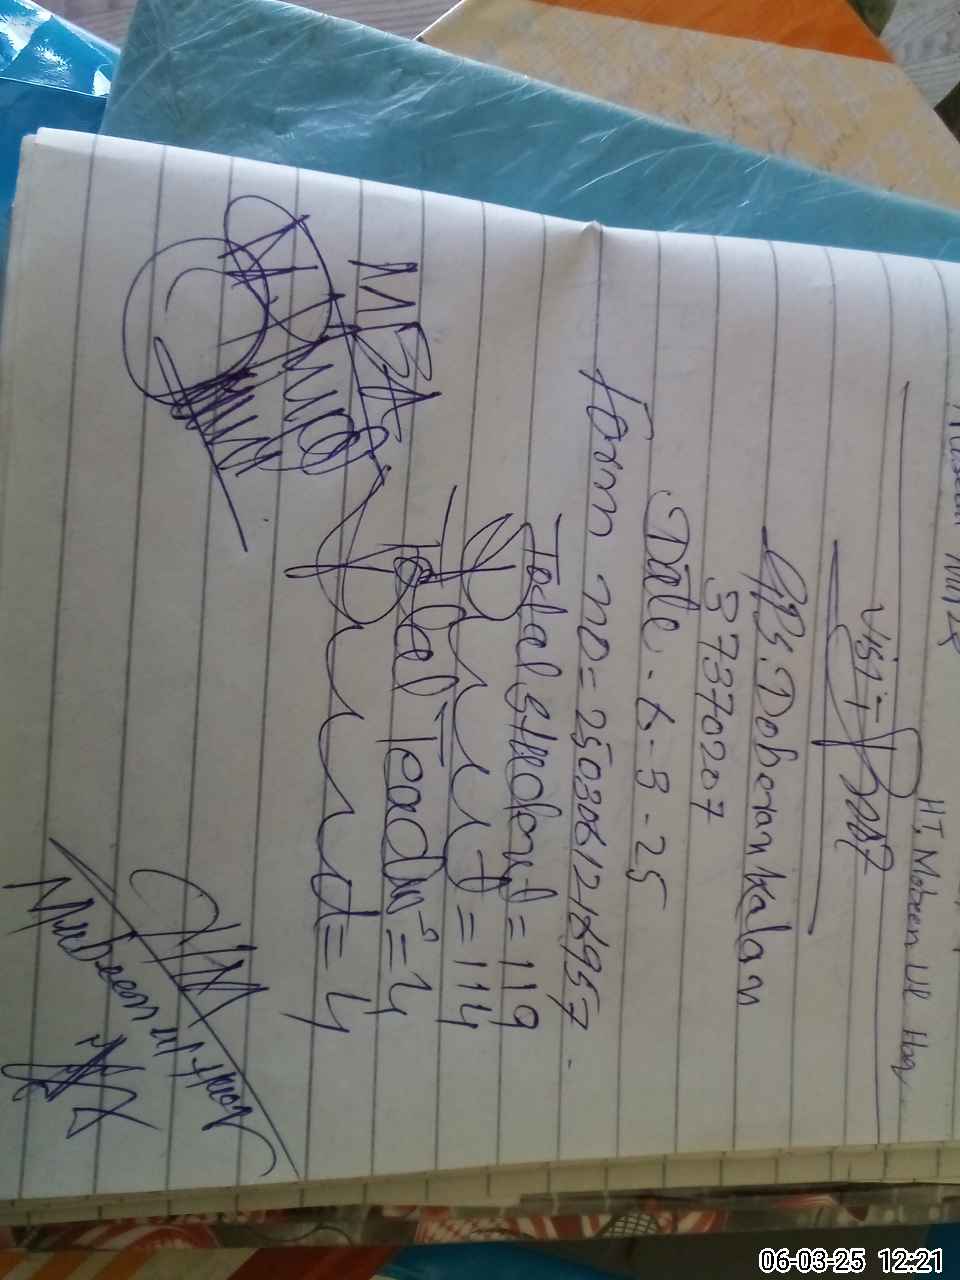 HT, Mobeen Ul Haq
Visit
GPS. Dohoran kalan
37370207
Date . 6-3-25
Form no = 250306121957
Total Student = 119
Present = 114
Total Teachers = 4
Present = 4
MEA
Mubeen ul Haq
06-03-25 12:21